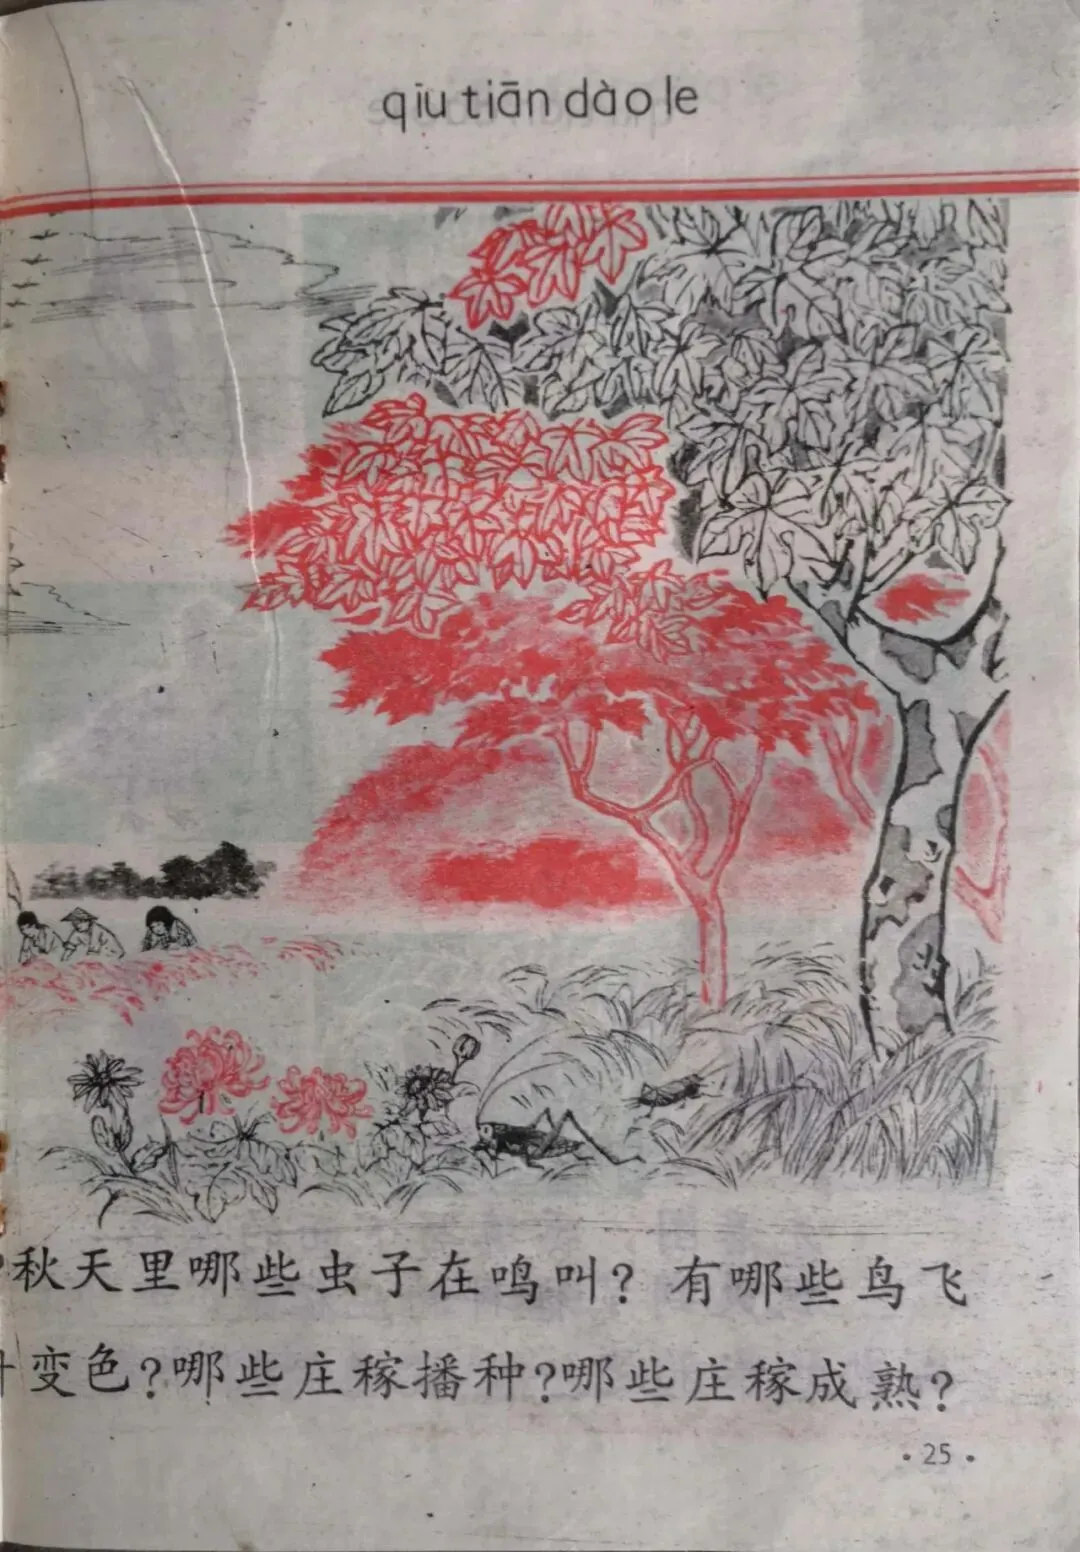 qiu tiān dào le
秋天里哪些虫子在鸣叫？有哪些鸟飞
变色？哪些庄稼播种？哪些庄稼成熟？
·25·